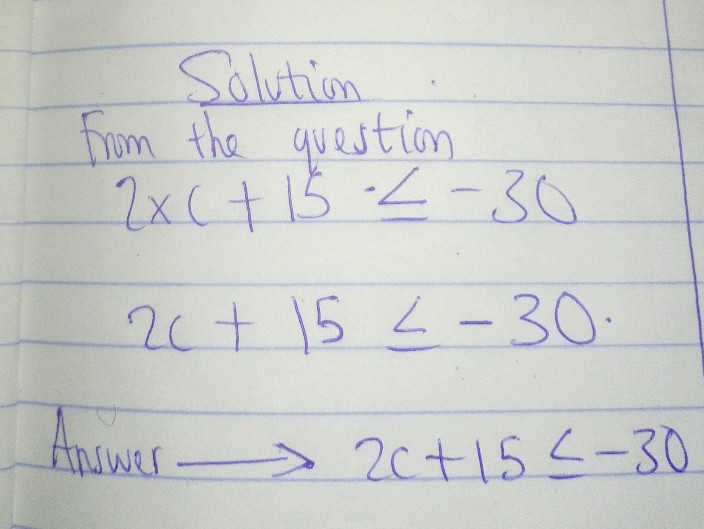 Solution
From the question
2xc + 15 ≤ -30
2c + 15 ≤ -30.
Answer → 2c+15 ≤ -30